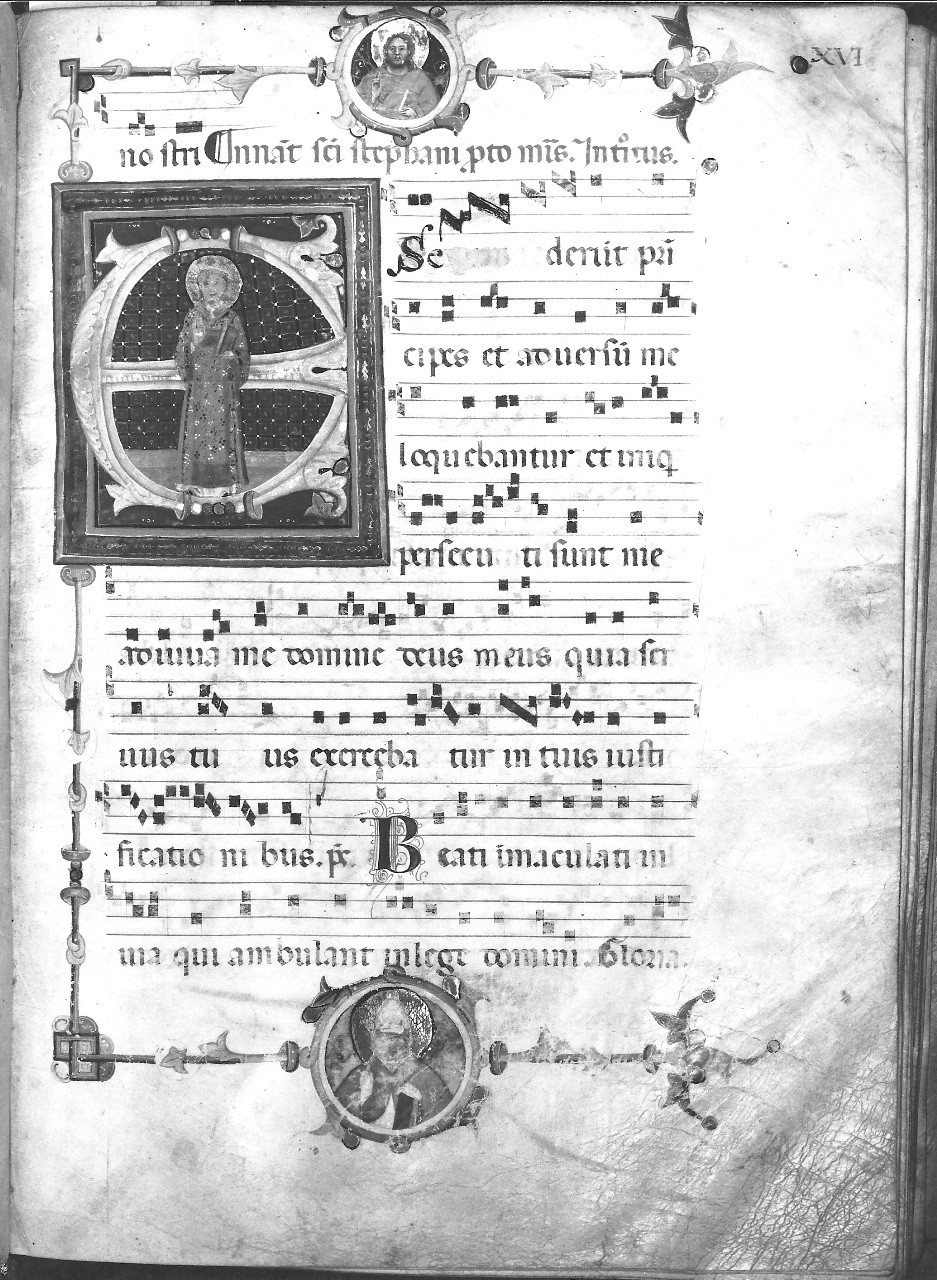 XVI
no stri In nāt sc̄i stephani ꝓto mīs. Introitus.
Se derūt prī
cipes et aduersū me
loquebantur et iniq
persecu ti sunt me
adiuua me domine deus meus quia ser
uus tu us exerceba tur in tuis iusti
ficatio ni bus. p̄s. B eati īmaculati in
uia qui ambulant in lege domini. Gloria.